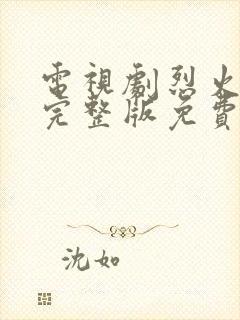 電視劇烈火
完整版免費
沈如